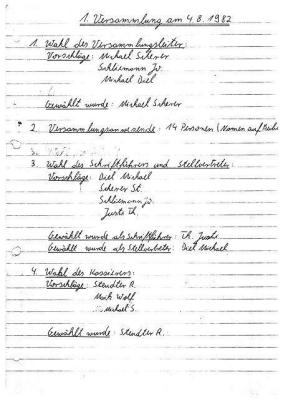 1. Versammlung am 4.8.1982
1. Wahl des Versammlungsleiter:
Vorschläge: Michael Scherer
Schliemann Jo.
Michael Diel
Gewählt wurde: Michael Scherer
2. Versammlungsanwesende: 14 Personen (Namen auf
3.
3. Wahl des Schriftführers und Stellvertreter:
Vorschläge: Diel Michael
Scherer St.
Schliemann Jo.
Justs Th.
Gewählt wurde als Schriftführer: Th. Justs
Gewählt wurde als Stellvertreter: Diel Michael
4. Wahl des Kassierers:
Vorschläge: Stendler R.
Wolf
Michael S.
Gewählt wurde: Stendler R.